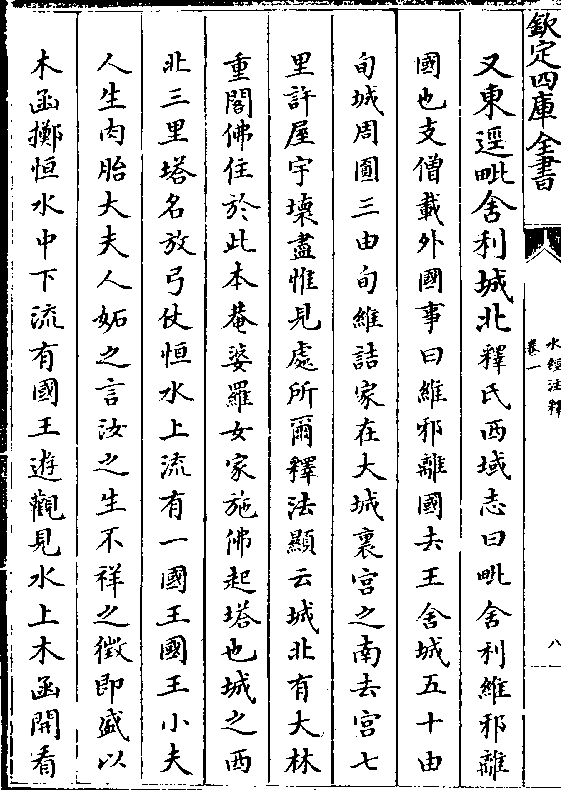 欽定四庫全書
水經注釋
卷一
八
又東逕毗舍利城北釋氏西域志曰毗舍利維邪離
國也支僧載外國事曰維邪離國去王舍城五十由
旬城周圍三由旬維詰家在大城裏宮之南去宮七
里許屋宇壞盡惟見處所爾釋法顯云城北有大林
重閣佛住於此本菴婆羅女家施佛起塔也城之西
北三里塔名放弓仗恒水上流有一國王國王小夫
人生肉胎大夫人妬之言汝之生不祥之徵即盛以
木函擲恒水中下流有國王遊觀見水上木函開看